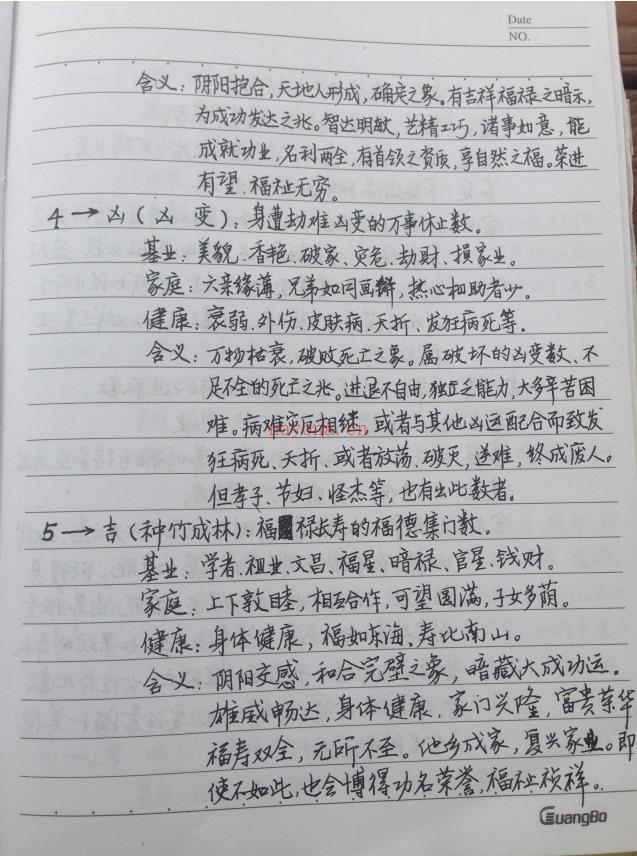 Date
NO.
含义：阴阳抱合，天地人形成，确定之象。有吉祥福禄之暗示，
为成功发达之兆。智达明敏，艺精工巧，诸事如意，能
成就功业，名利两全，有首领之资质，享自然之福。荣进
有望、福祉无穷。
4→凶（凶 变）：身遭劫难凶变的万事休止数。
基业：美貌、香艳、破家、灾危、劫财、损家业。
家庭：六亲缘薄，兄弟如同画饼，热心相助者少。
健康：衰弱、外伤、皮肤病、夭折、发狂病死等。
含义：万物枯衰，破败死亡之象。属破坏的凶变数、不
足不全的死亡之兆。进退不自由，独立之能力，大多辛苦困
难。病难灾厄相继，或者与其他凶运配合而致发
狂病死、夭折、或者放荡、破灭，逆难，终成废人。
但孝子、节妇、怪杰等，也有出此数者。
5→吉（种竹成林）：福禄长寿的福德集门数。
基业：学者、祖业、文昌、福星、暗禄、官星、钱财。
家庭：上下敦睦，相互合作，可望圆满，子女多荫。
健康：身体健康，福如东海，寿比南山。
含义：阴阳交感，和合完壁之象，暗藏大成功运。
雄威畅达，身体健康、家门兴隆，富贵荣华
福寿双全，无所不至。他乡成家，复兴家业。即
使不如此，也会博得功名荣誉，福祉祯祥。
GuangBo